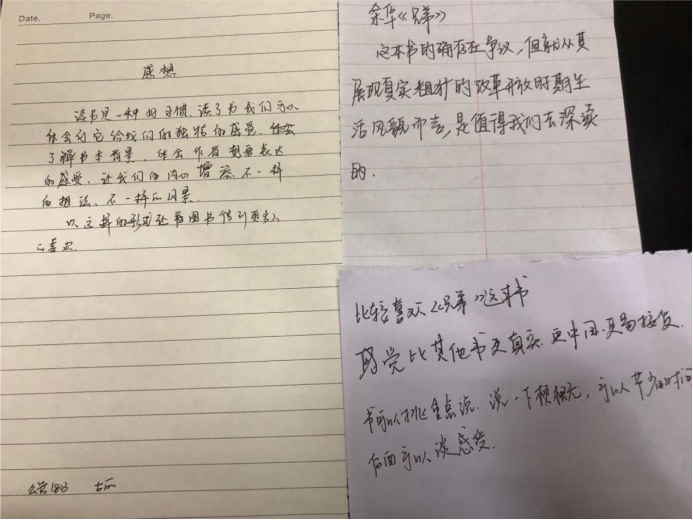 Date. Page.
感想
读书是一种好习惯,读了书我们可以
体会到它给我们的独特的感受,体会
了解书本背景,体会作者想要表达
的感受,让我们的内心增添不一样
的想法、不一样的风景.
以这样的形式让图书借引更多人
喜欢.
余华《兄弟》
这本书的确存在争议,但就从其
展现真实粗犷的改革开放时期生
活风貌而言,是值得我们去深读
的.
比较喜欢《兄弟》这本书
感觉比其他书更真实.更中国.更易接受.
书可以挑重点说.说一下梗概,可以节省时间
后面可以谈感受.